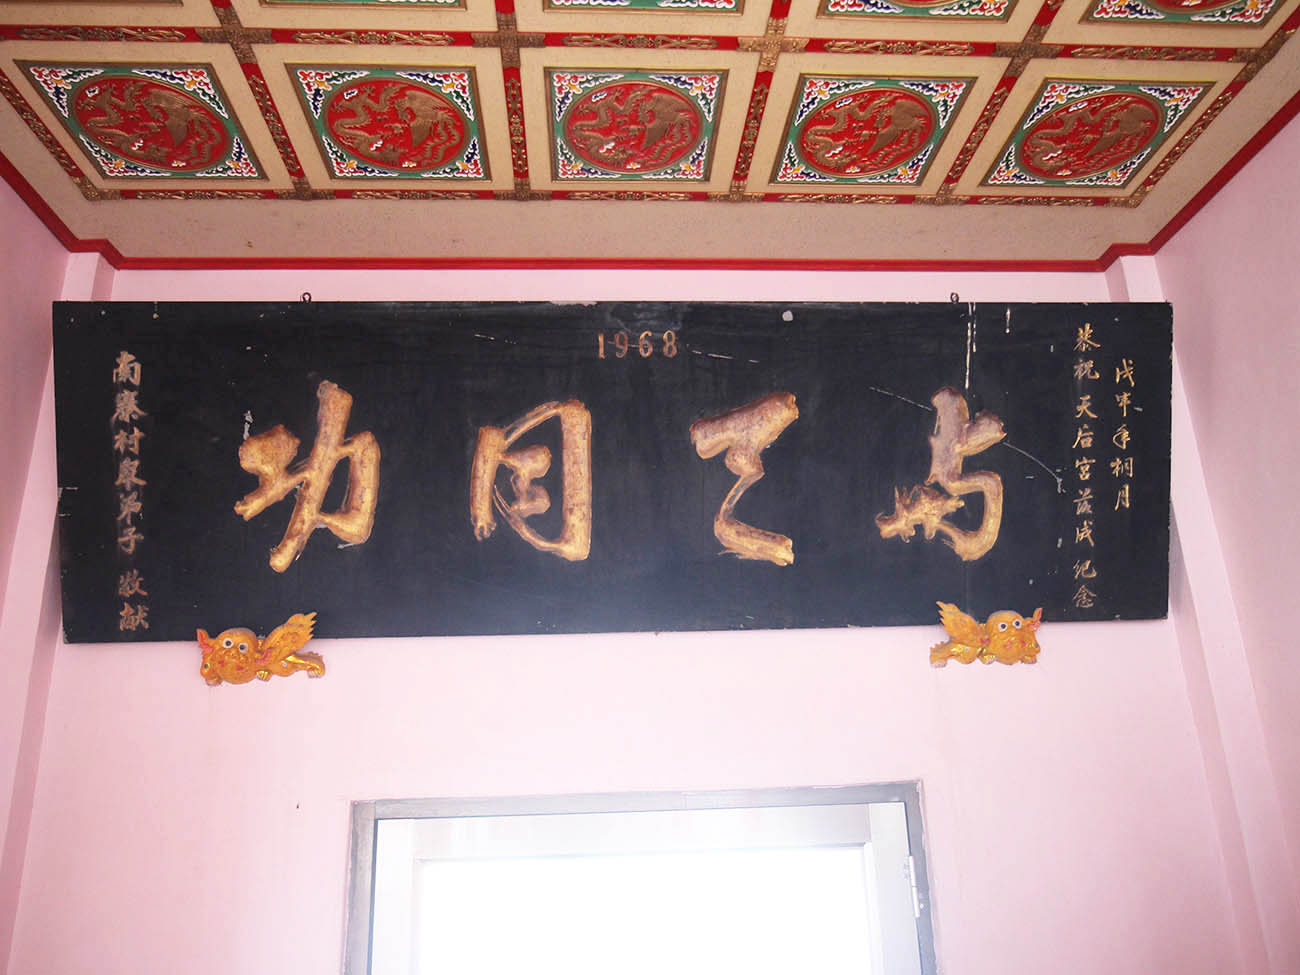 1968
戊申年桐月
恭祝天后宮落成紀念
与天同功
南寮村眾弟子 敬献